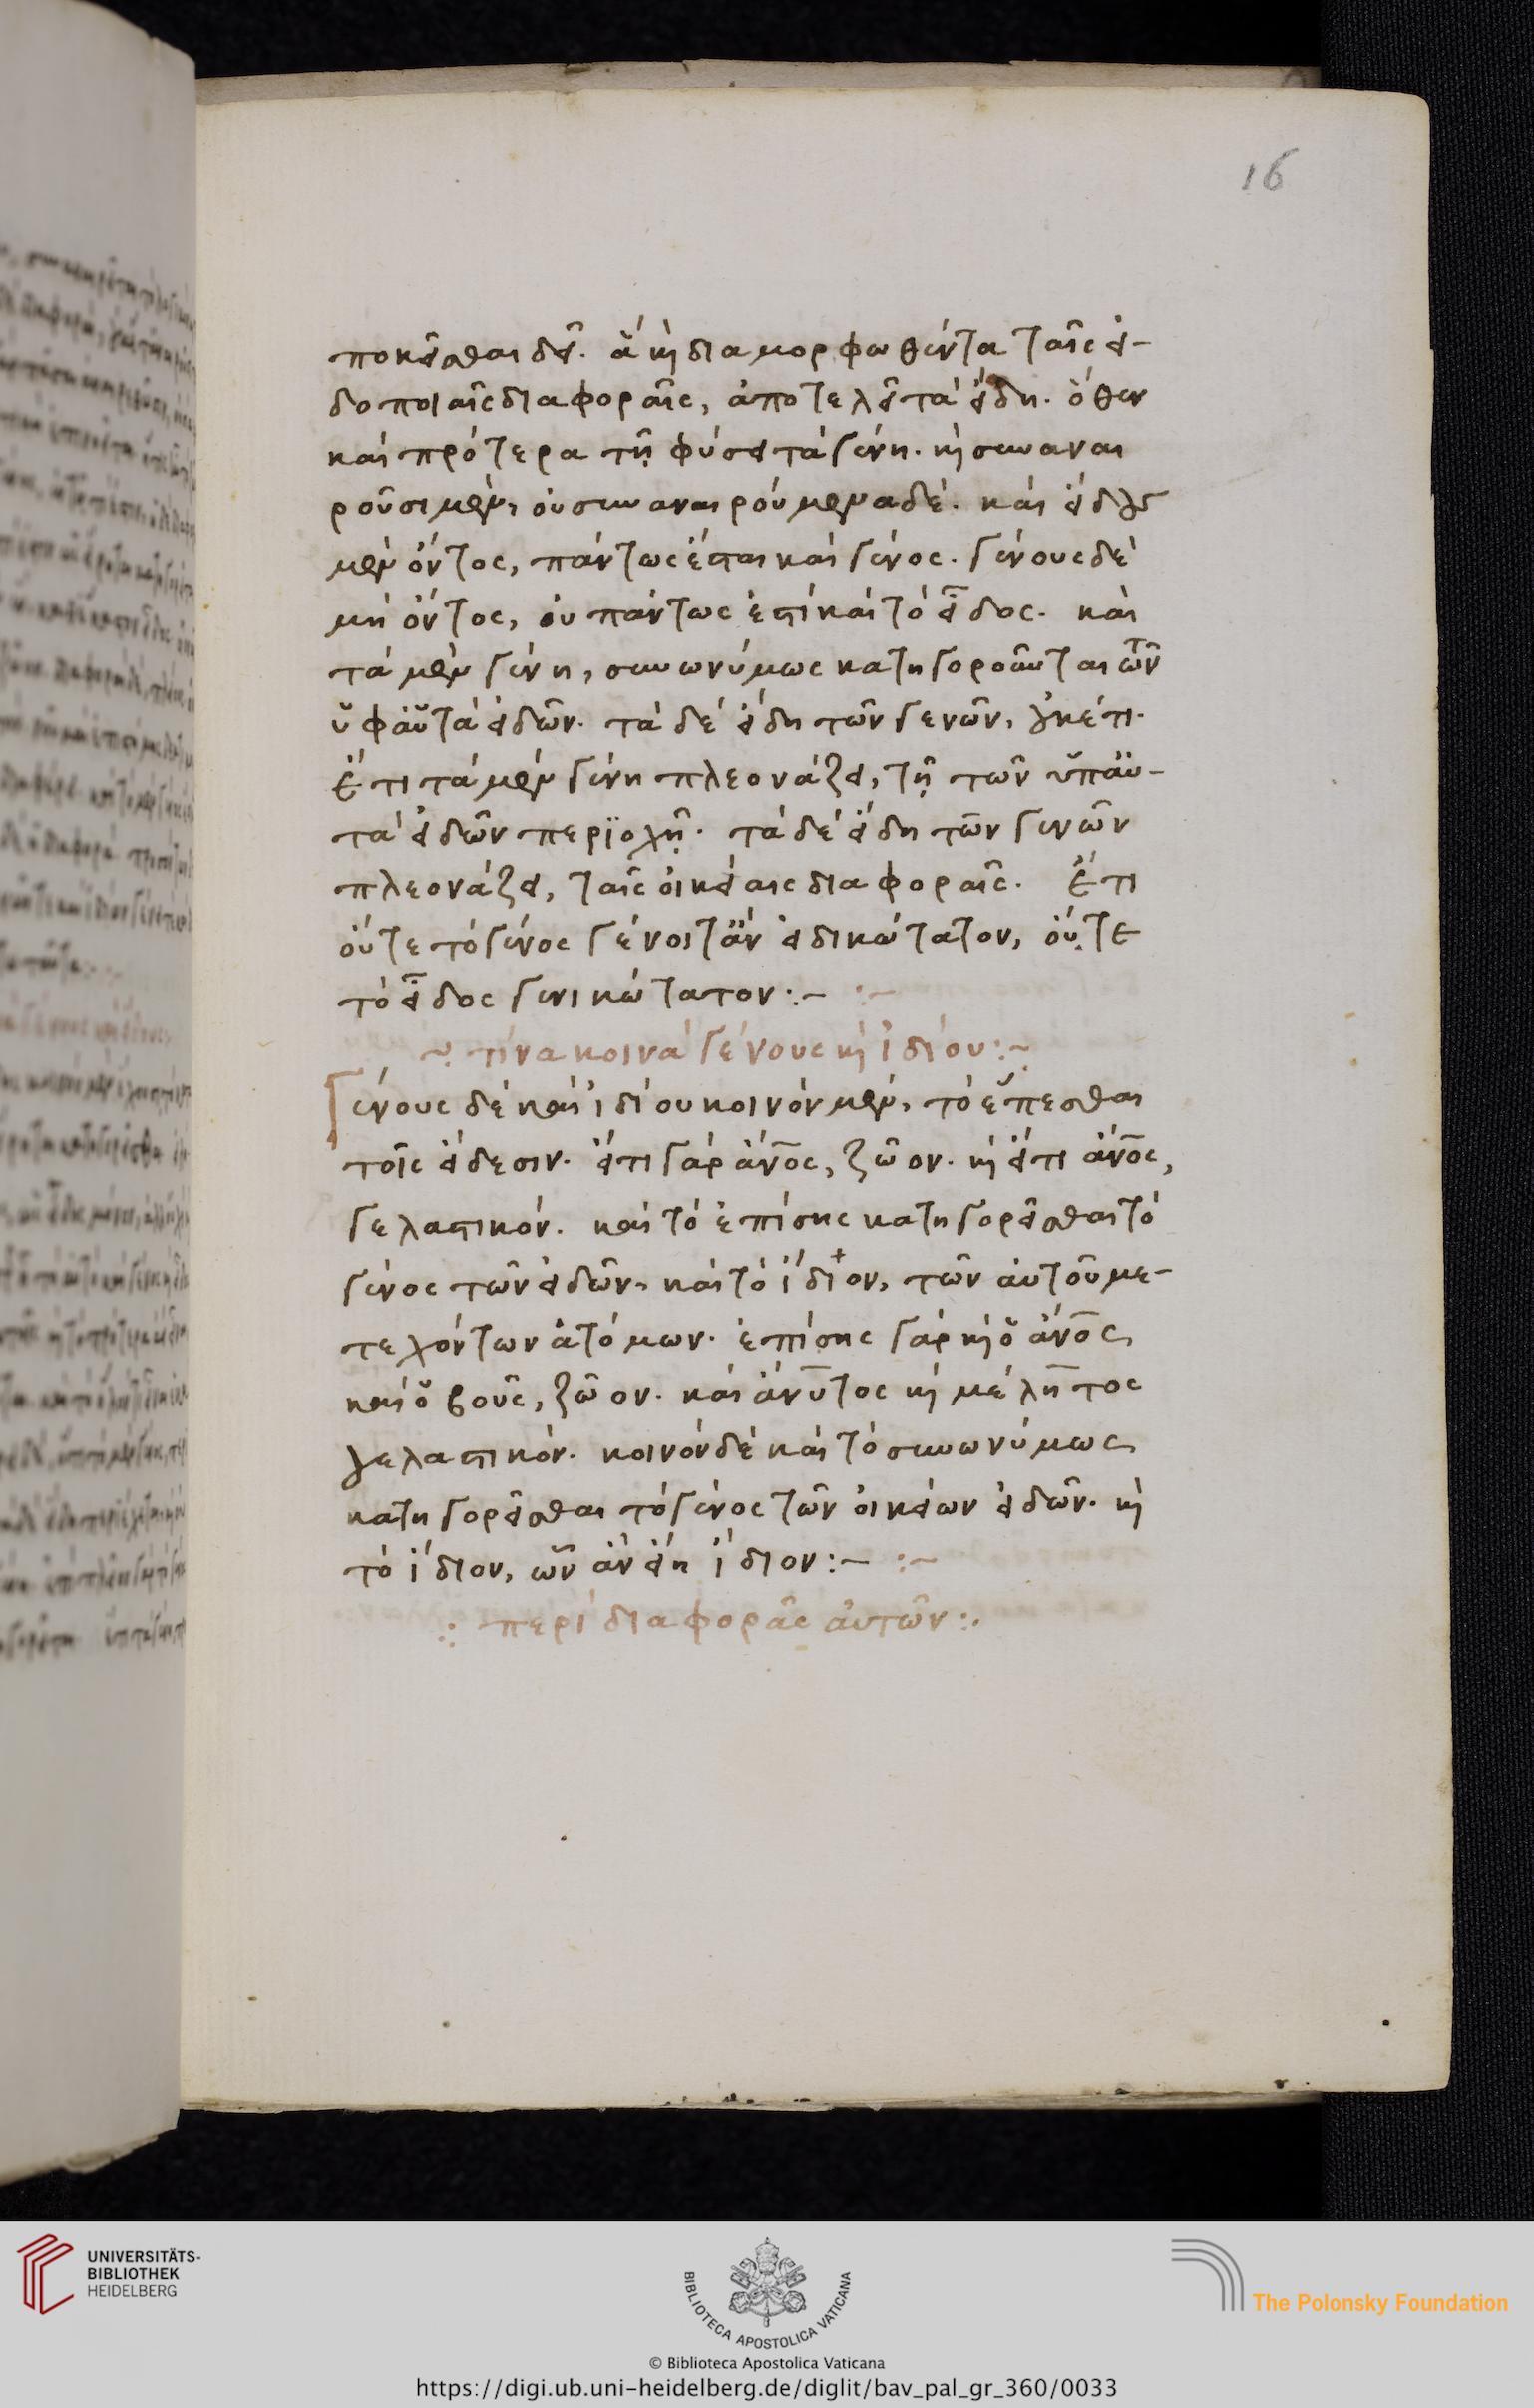 16
ποκεῖσθαι δεῖ. ἃ καὶ διαμορφωθέντα ταῖς εἰ-
δοποιαῖς διαφοραῖς, ἀποτελεῖ τὰ εἴδη. ὅθεν
καὶ πρότερα τῇ φύσει τὰ γένη. καὶ συναναι
ροῦσι μὲν, οὐ συναναιρούμενα δέ. καὶ εἴδους
μὲν ὄντος, πάντως ἔσται καὶ γένος. γένους δὲ
μὴ ὄντος, οὐ πάντως ἐστὶ καὶ τὸ εἶδος. καὶ
τὰ μὲν γένη, συνωνύμως κατηγοροῦνται τῶν
ὑφ' αὑτὰ εἰδῶν. τὰ δὲ εἴδη τῶν γενῶν, οὐκέτι.
ἔτι τὰ μὲν γένη πλεονάζει, τῇ τῶν ὑπ' αὐ-
τὰ εἰδῶν περιοχῇ. τὰ δὲ εἴδη τῶν γενῶν
πλεονάζει, ταῖς οἰκείαις διαφοραῖς. ἔτι
οὔτε τὸ γένος γένοιτ' ἂν εἰδικώτατον, οὔτε
τὸ εἶδος γενικώτατον :–  :–
τίνα κοινὰ γένους καὶ ἰδίου :~
Γένους δὲ καὶ ἰδίου κοινὸν μὲν, τὸ ἕπεσθαι
τοῖς εἴδεσιν. εἴ τι γὰρ ἄνος, ζῶον. καὶ εἴ τι ἄνος,
γελαστικόν. καὶ τὸ ἐπίσης κατηγορεῖσθαι τὸ
γένος τῶν εἰδῶν, καὶ τὸ ἴδιον, τῶν αὐτοῦ με-
τεχόντων ἀτόμων. ἐπίσης γὰρ καὶ ὁ ἄνος,
καὶ ὁ βοῦς, ζῶον. καὶ ἄνυτος καὶ μέλητος
γελαστικόν. κοινὸν δὲ καὶ τὸ συνωνύμως
κατηγορεῖσθαι τὸ γένος τῶν οἰκείων εἰδῶν. καὶ
τὸ ἴδιον, ὧν ἂν εἴη ἴδιον :–  :~
περὶ διαφορᾶς αὐτῶν :.
UNIVERSITÄTS-
BIBLIOTHEK
HEIDELBERG
BIBLIOTECA APOSTOLICA VATICANA
The Polonsky Foundation
© Biblioteca Apostolica Vaticana
https://digi.ub.uni-heidelberg.de/diglit/bav_pal_gr_360/0033